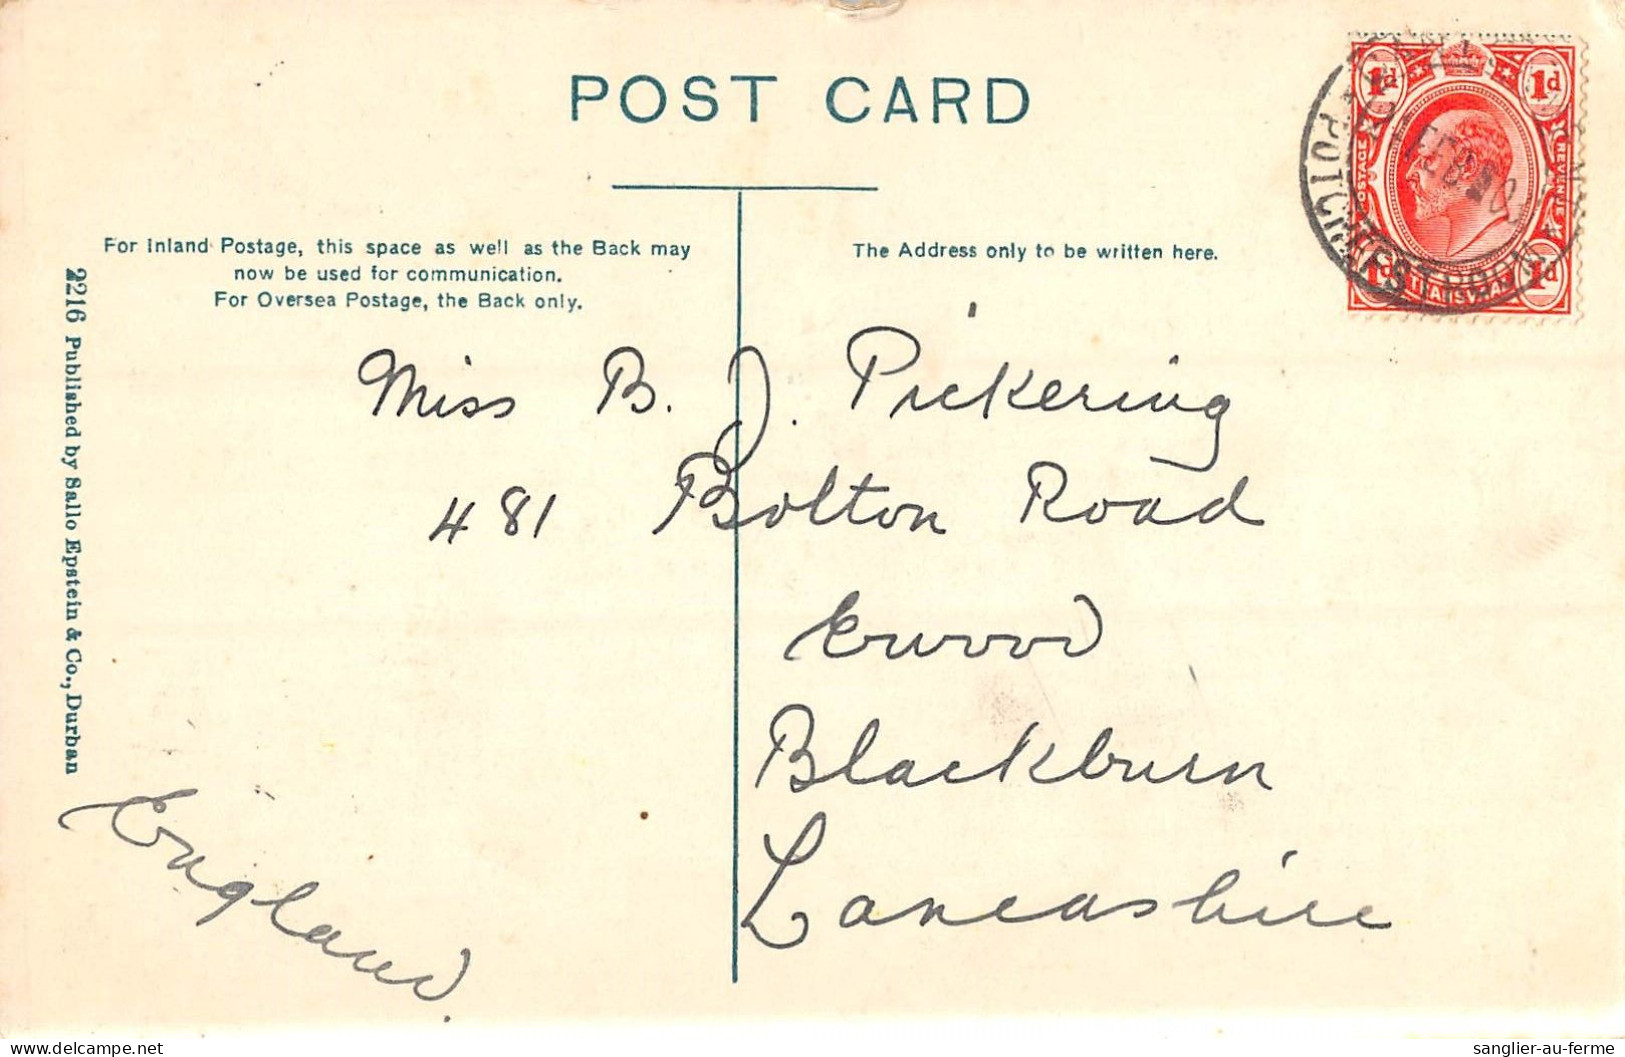 POST CARD
For Inland Postage, this space as well as the Back may
now be used for communication.
For Oversea Postage, the Back only.
The Address only to be written here.
2216 Published by Sallo Epstein & Co., Durban
1d 1d
POSTAGE REVENUE
1d TRANSVAAL 1d
POTCHEFSTROOM
FEB
Miss B. J. Pickering
481 Bolton Road
Ewood
Blackburn
Lancashire
England.
sanglier-au-ferme
delcampe.net